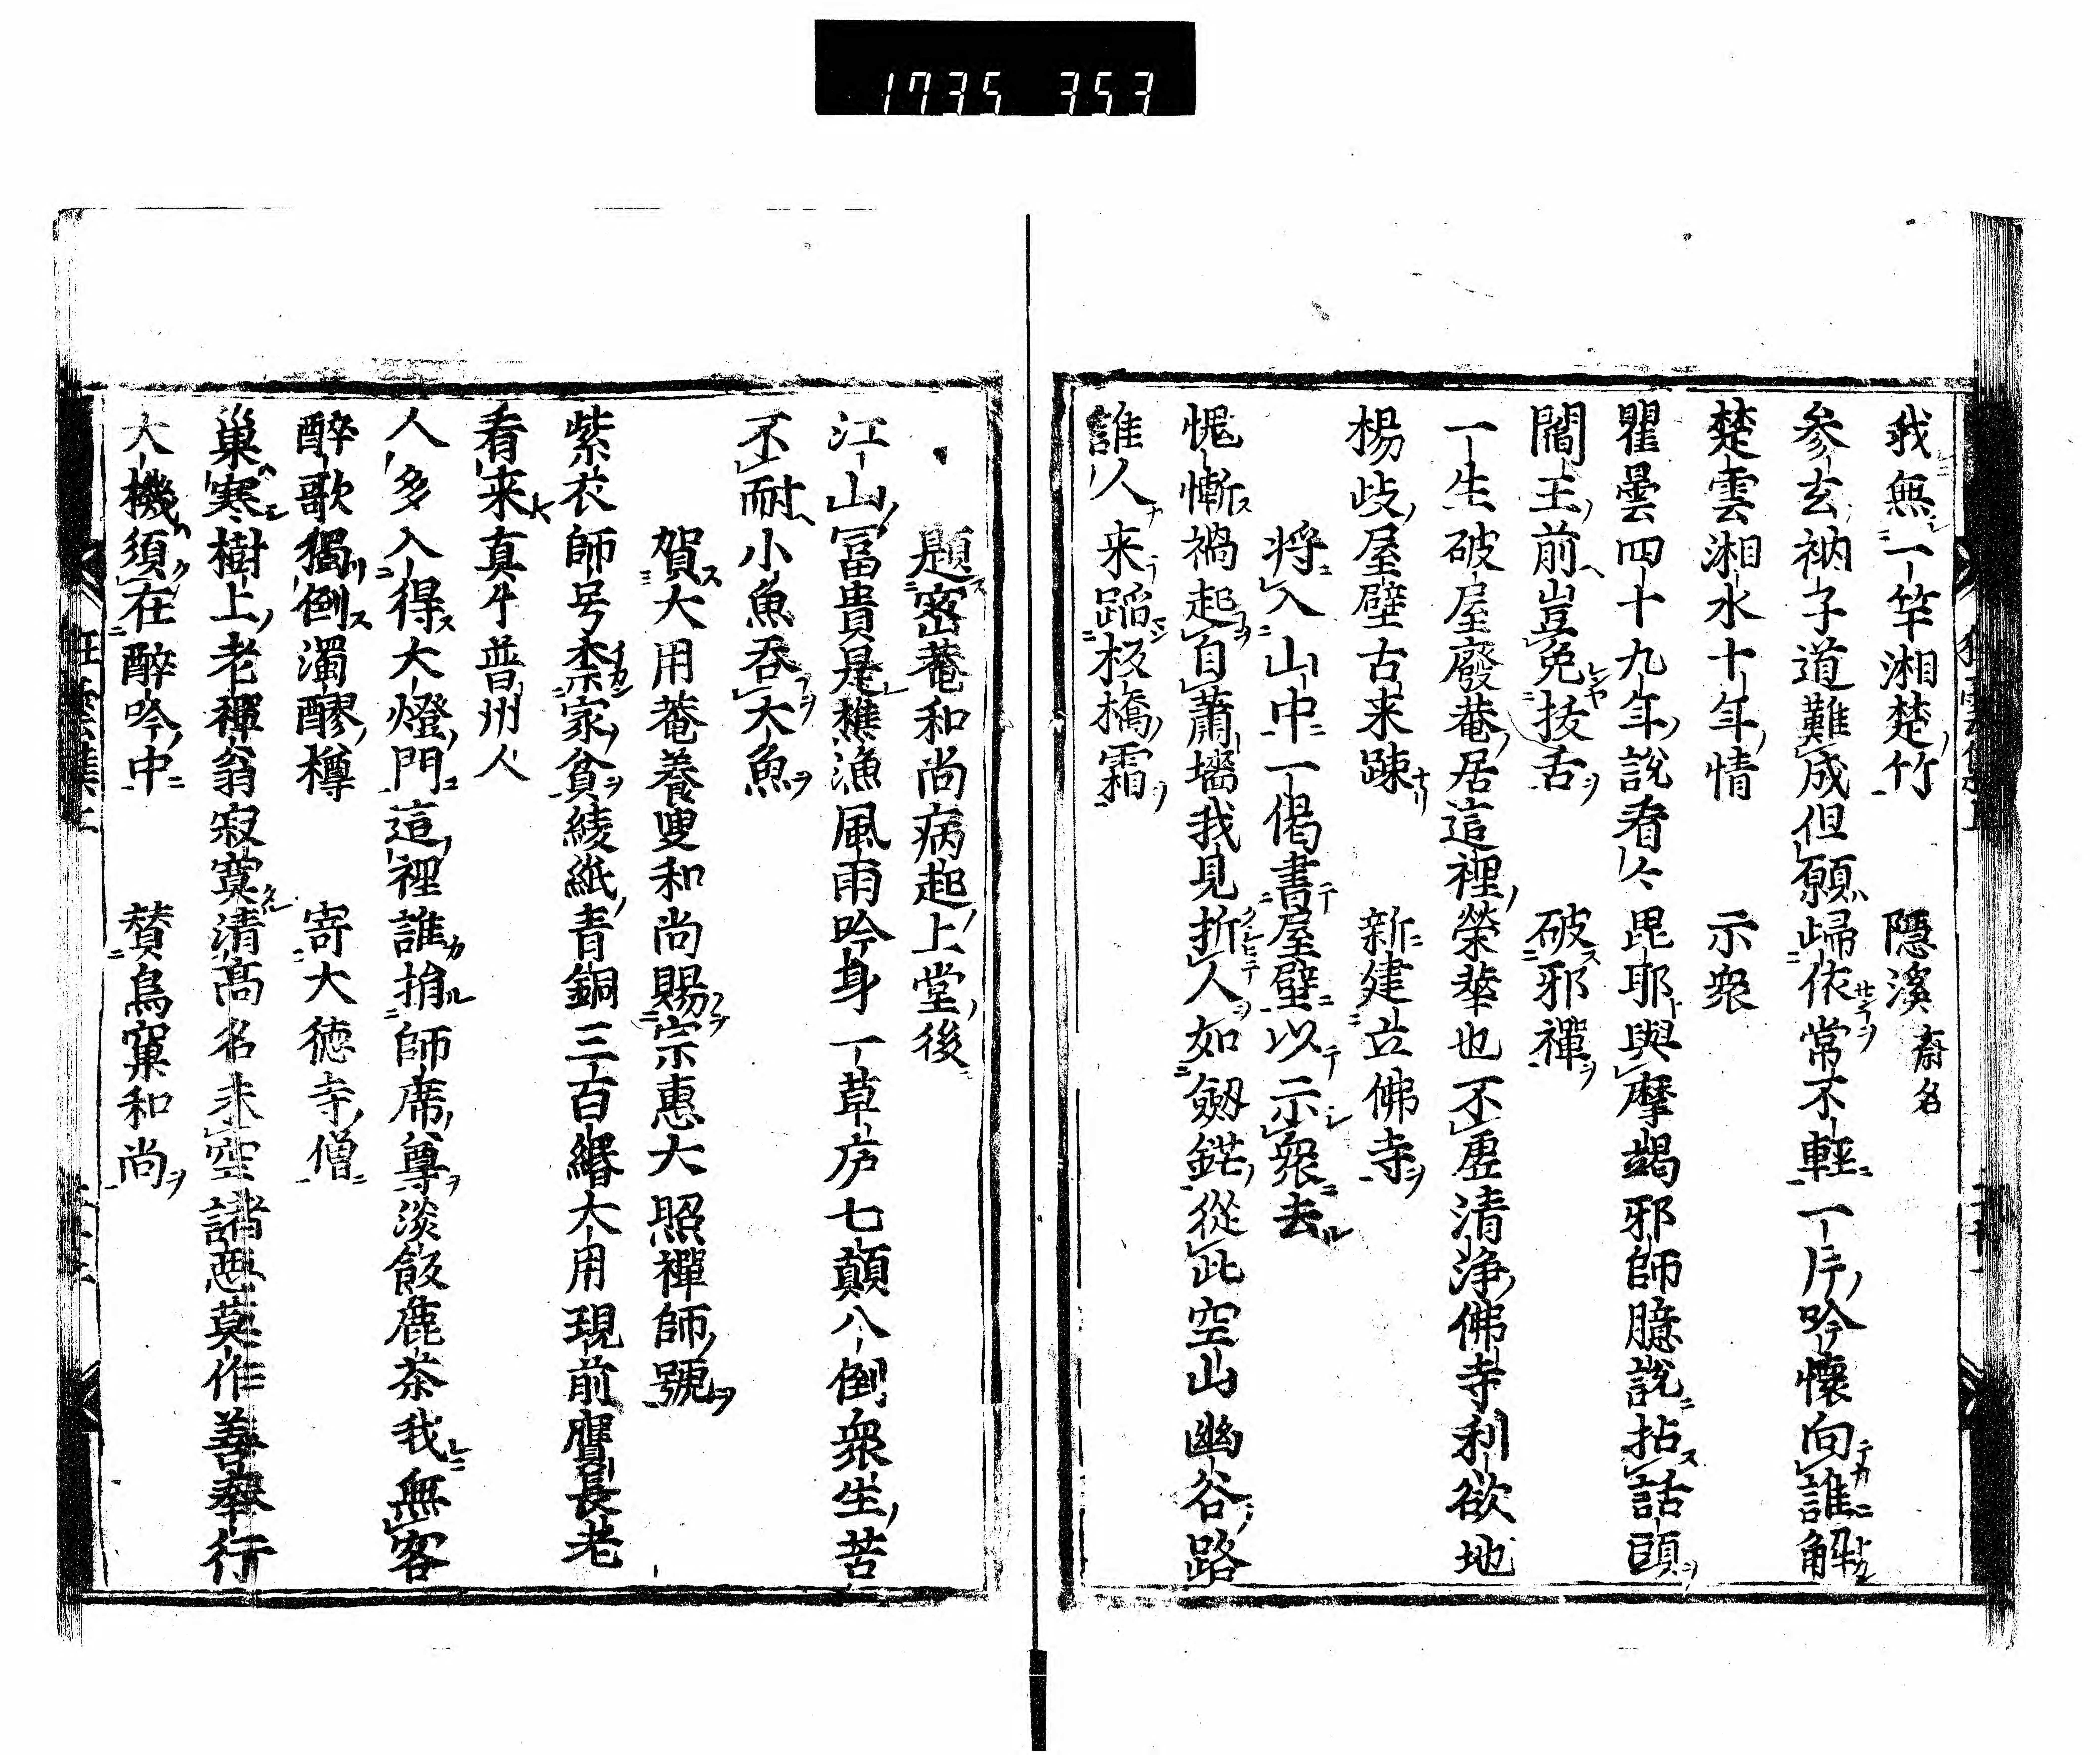 1735 353
我無一竿湘楚竹 隠溪 斎名
参玄衲子道難成但願帰依常不輕一片吟懷向誰解
楚雲湘水十年情 示衆
瞿曇四十九年説看々毘耶與摩竭邪師臆説拈話頭
閻王前豈免抜舌 破邪禪
一生破屋廢菴居這裡榮華也不虚清浄佛寺利欲地
楊岐屋壁古来踈 新建立佛寺
将入山中一偈書屋壁以示衆去
愧慚禍起自蕭墻我見折人如劔鋩從此空山幽谷路
誰人来蹈板橋霜
題密菴和尚病起上堂後
江山冨貴是樵漁風雨吟身一草庐七顛八倒衆生苦
不耐小魚吞大魚
賀大用菴養叟和尚賜宗惠大照禪師號
紫衣師号柰家貧綾紙青銅三百緡大用現前贋長老
看来真个普州人
人多入得大燈門這裡誰捐師席尊淡飯麁茶我無客
醉歌獨倒濁醪樽 寄大徳寺僧
巣寒樹上老禪翁寂寞清髙名未空諸惡莫作善奉行
大機須在醉吟中 賛鳥窠和尚
狂雲集上